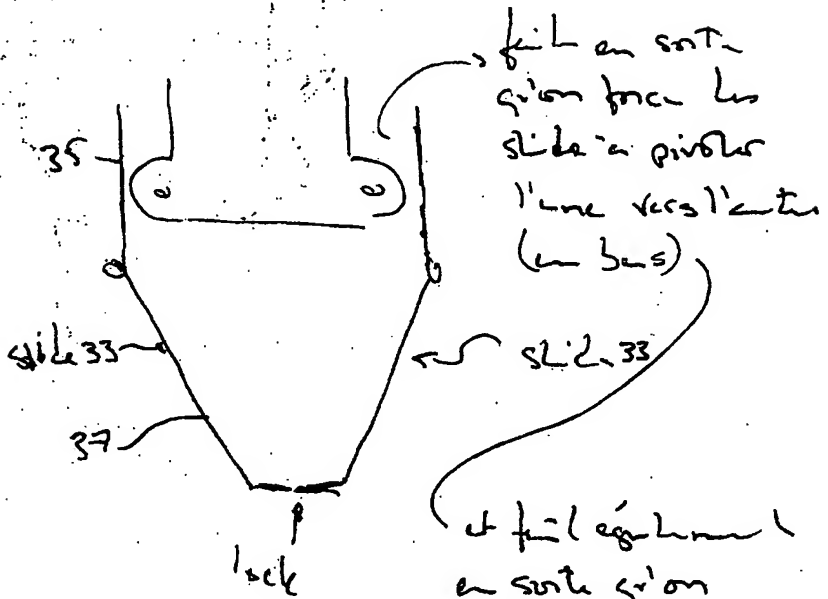 fait en sorte
qu'on force les
slide à pivoter
l'une vers l'autre
(en bas)
35
slide 33
slide 33
37
lock
et fait également
en sorte qu'on